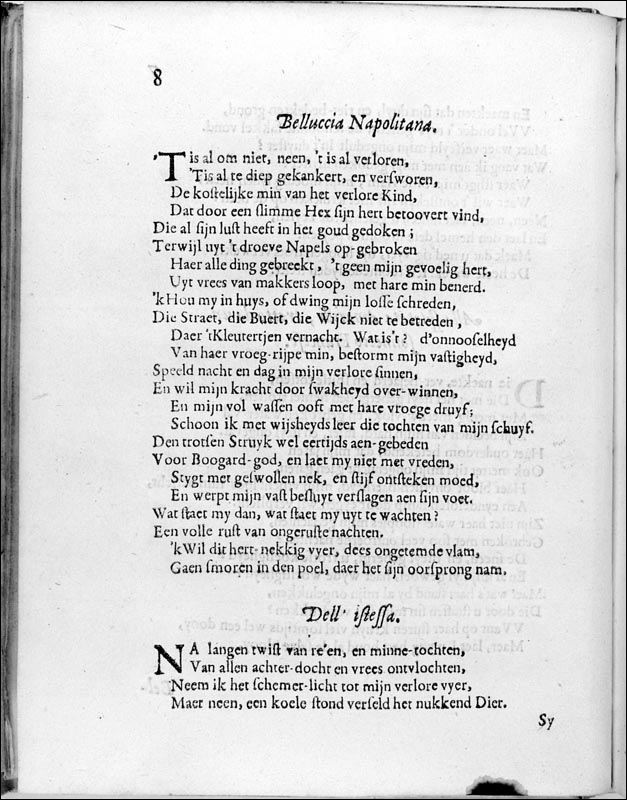 8
Belluccia Napolitana.
'Tis al om niet, neen, 't is al verloren,
'Tis al te diep gekankert, en versworen,
De kostelijke min van het verlore Kind,
Dat door een slimme Hex sijn hert betoovert vind,
Die al sijn lust heeft in het goud gedoken;
Terwijl uyt 't droeve Napels op-gebroken
Haer alle ding gebreekt, 't geen mijn gevoelig hert,
Uyt vrees van makkers loop, met hare min benerd.
'k Hou my in huys, of dwing mijn losse schreden,
Die Straet, die Buert, die Wijck niet te betreden,
Daer 't Kleutertjen vernacht. Wat is't? d'onnooselheyd
Van haer vroeg-rijpe min, bestormt mijn vastigheyd,
Speeld nacht en dag in mijn verlore sinnen,
En wil mijn kracht door swakheyd over-winnen,
En mijn vol wassen ooft met hare vroege druyf;
Schoon ik met wijsheyds leer die tochten van mijn schuyf.
Den trotsen Struyk wel eertijds aen-gebeden
Voor Boogard-god, en laet my niet met vreden,
Stygt met geswollen nek, en stijf ontsteken moed,
En werpt mijn vast besluyt verslagen aen sijn voet.
Wat staet my dan, wat staet my uyt te wachten?
Een volle rust van ongeruste nachten.
'k Wil dit hert-nekkig vyer, dees ongetemde vlam,
Gaen smoren in den poel, daer het sijn oorsprong nam.
Dell' istessa.
NA langen twist van re'en, en minne-tochten,
Van allen achter-docht en vrees ontvlochten,
Neem ik het schemer-licht tot mijn verlore vyer,
Maer neen, een koele stond verseld het nukkend Dier.
Sy